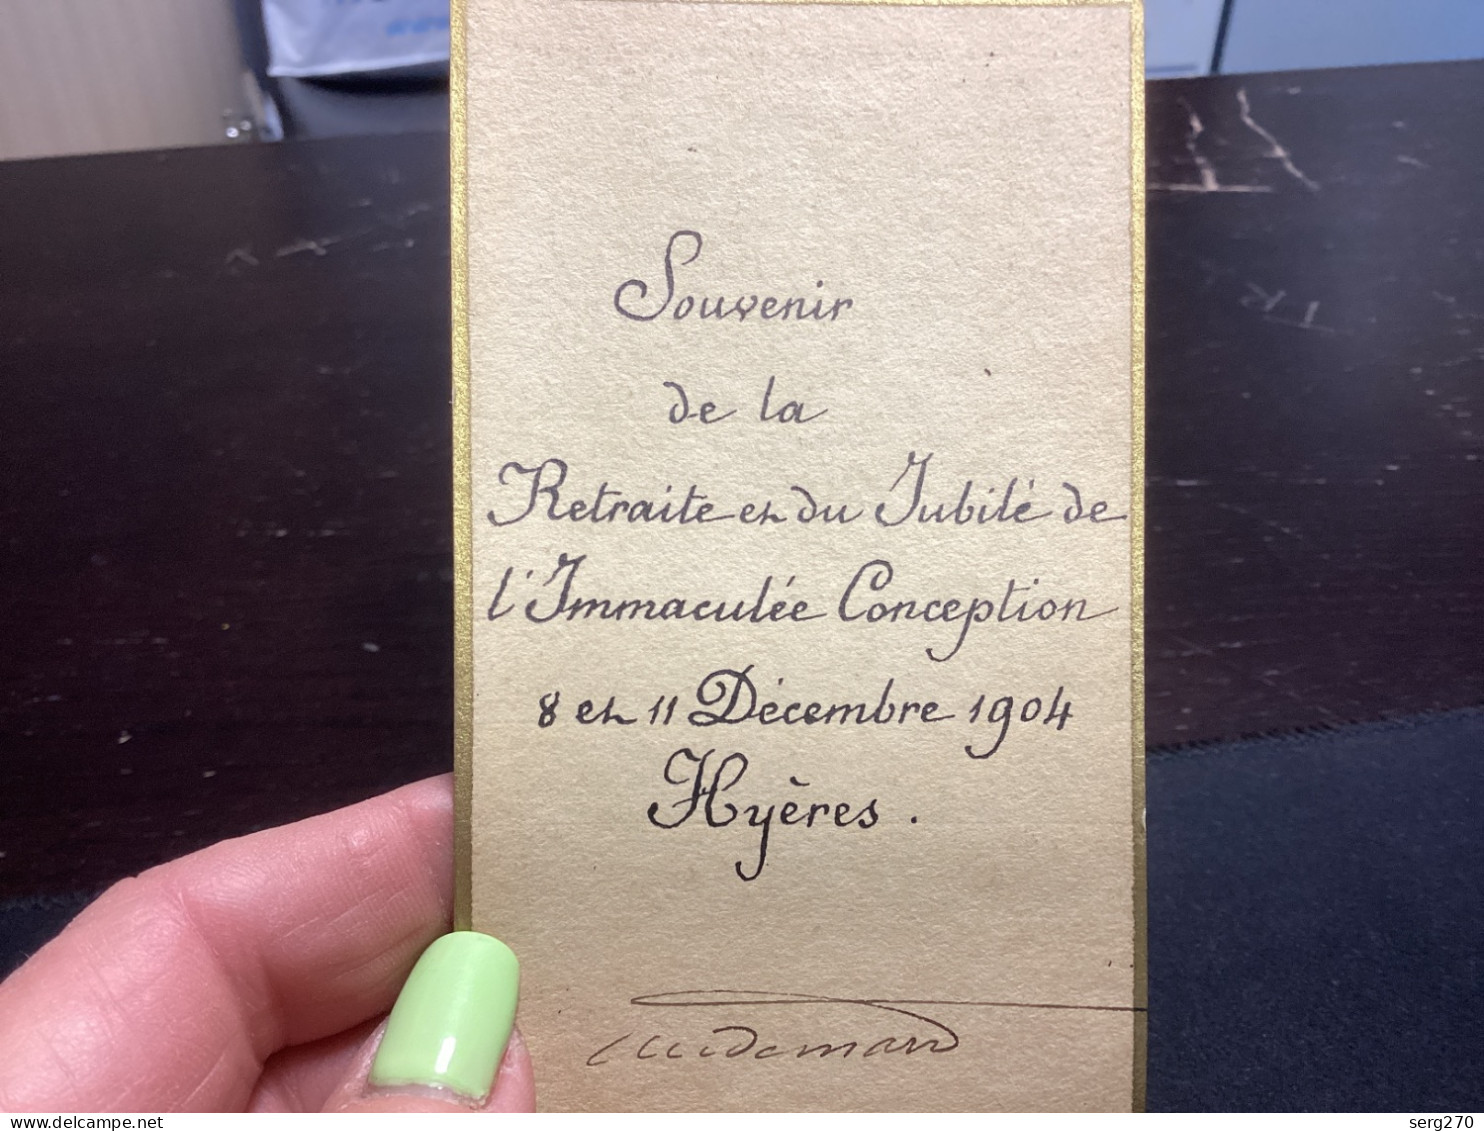 Souvenir
de la
Retraite et du Jubilé de
l'Immaculée Conception
8 et 11 Décembre 1904
Hyères.
delcampe.net
serg270